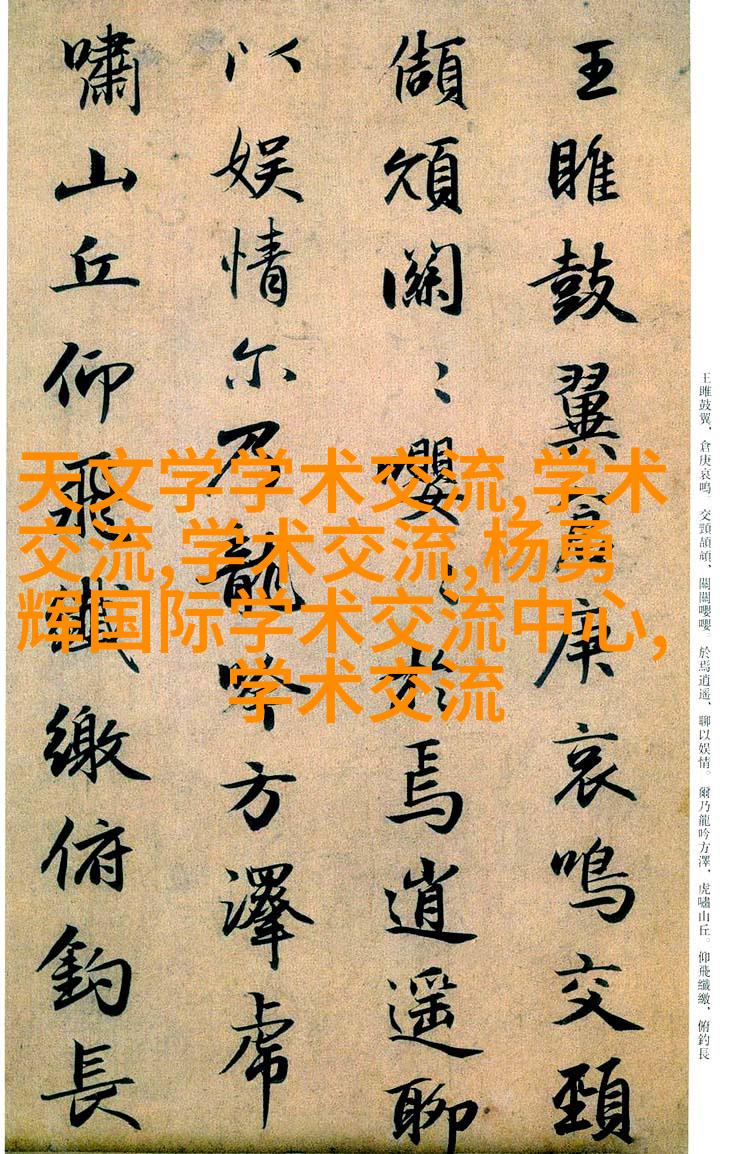 王雎鼓翼倉庚哀鳴交頸
頡頏關〻嚶〻於焉逍遥聊
以娱情尔乃龍吟方澤虎
嘯山丘仰飛纖繳俯釣長
天文学学术交流,学术
交流,学术交流,杨勇
辉国际学术交流中心,
学术交流
王雎鼓翼、倉庚哀鳴。交頸頡頏、關關嚶嚶。於焉逍遥、聊以娱情。爾乃龍吟方澤、虎嘯山丘。仰飛纖繳、俯釣長